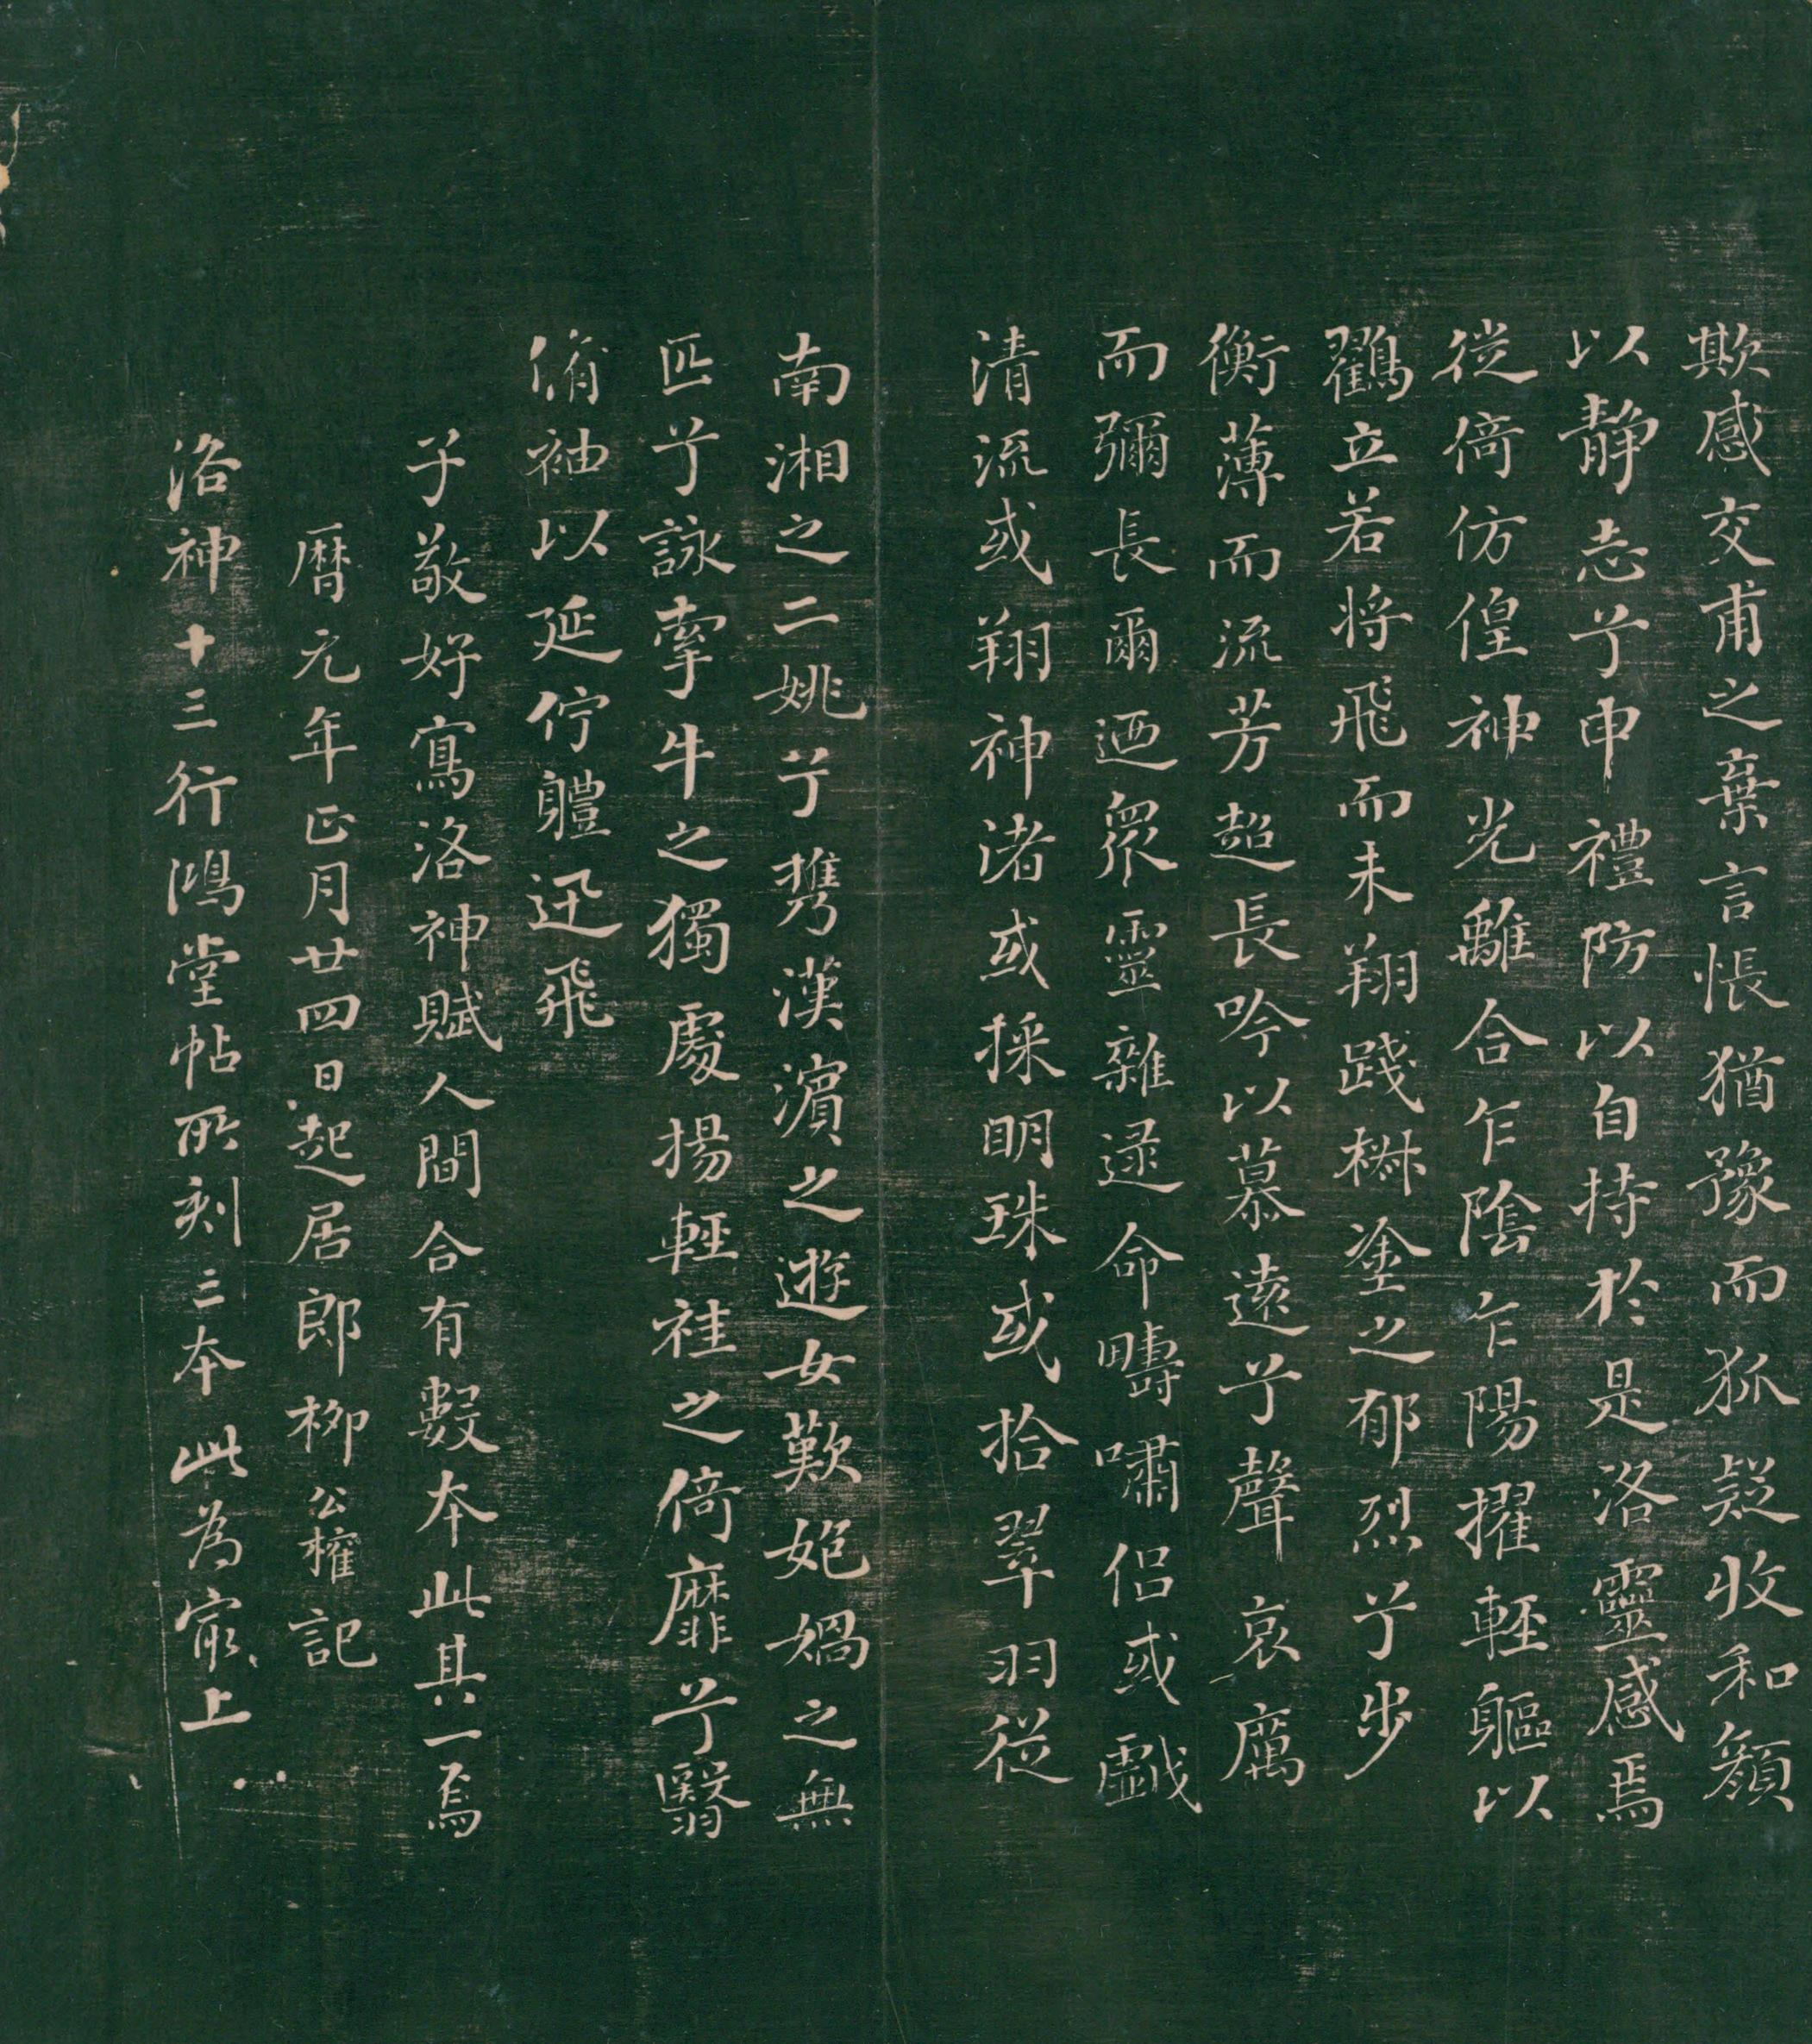 欺感交甫之棄言悵猶豫而狐疑收和顏
以靜志兮申禮防以自持於是洛靈感焉
徙倚仿偟神光離合乍陰乍陽擢輕軀以
鶴立若将飛而未翔踐椒塗之郁烈兮步
衡薄而流芳超長吟以慕遠兮聲哀厲
而彌長爾迺衆靈雜遝命疇嘯侣或戲
清流或翔神渚或採明珠或拾翠羽從
南湘之二姚兮携漢濵之遊女歎娝媧之無
匹兮詠牽牛之獨處揚輕袿之倚靡兮翳
脩袖以延佇軆迅飛
子敬好寫洛神賦人間合有數本此其一焉
曆元年正月廿四日起居郎柳公權記
洛神十三行鴻堂帖所刻三本此為㝡上